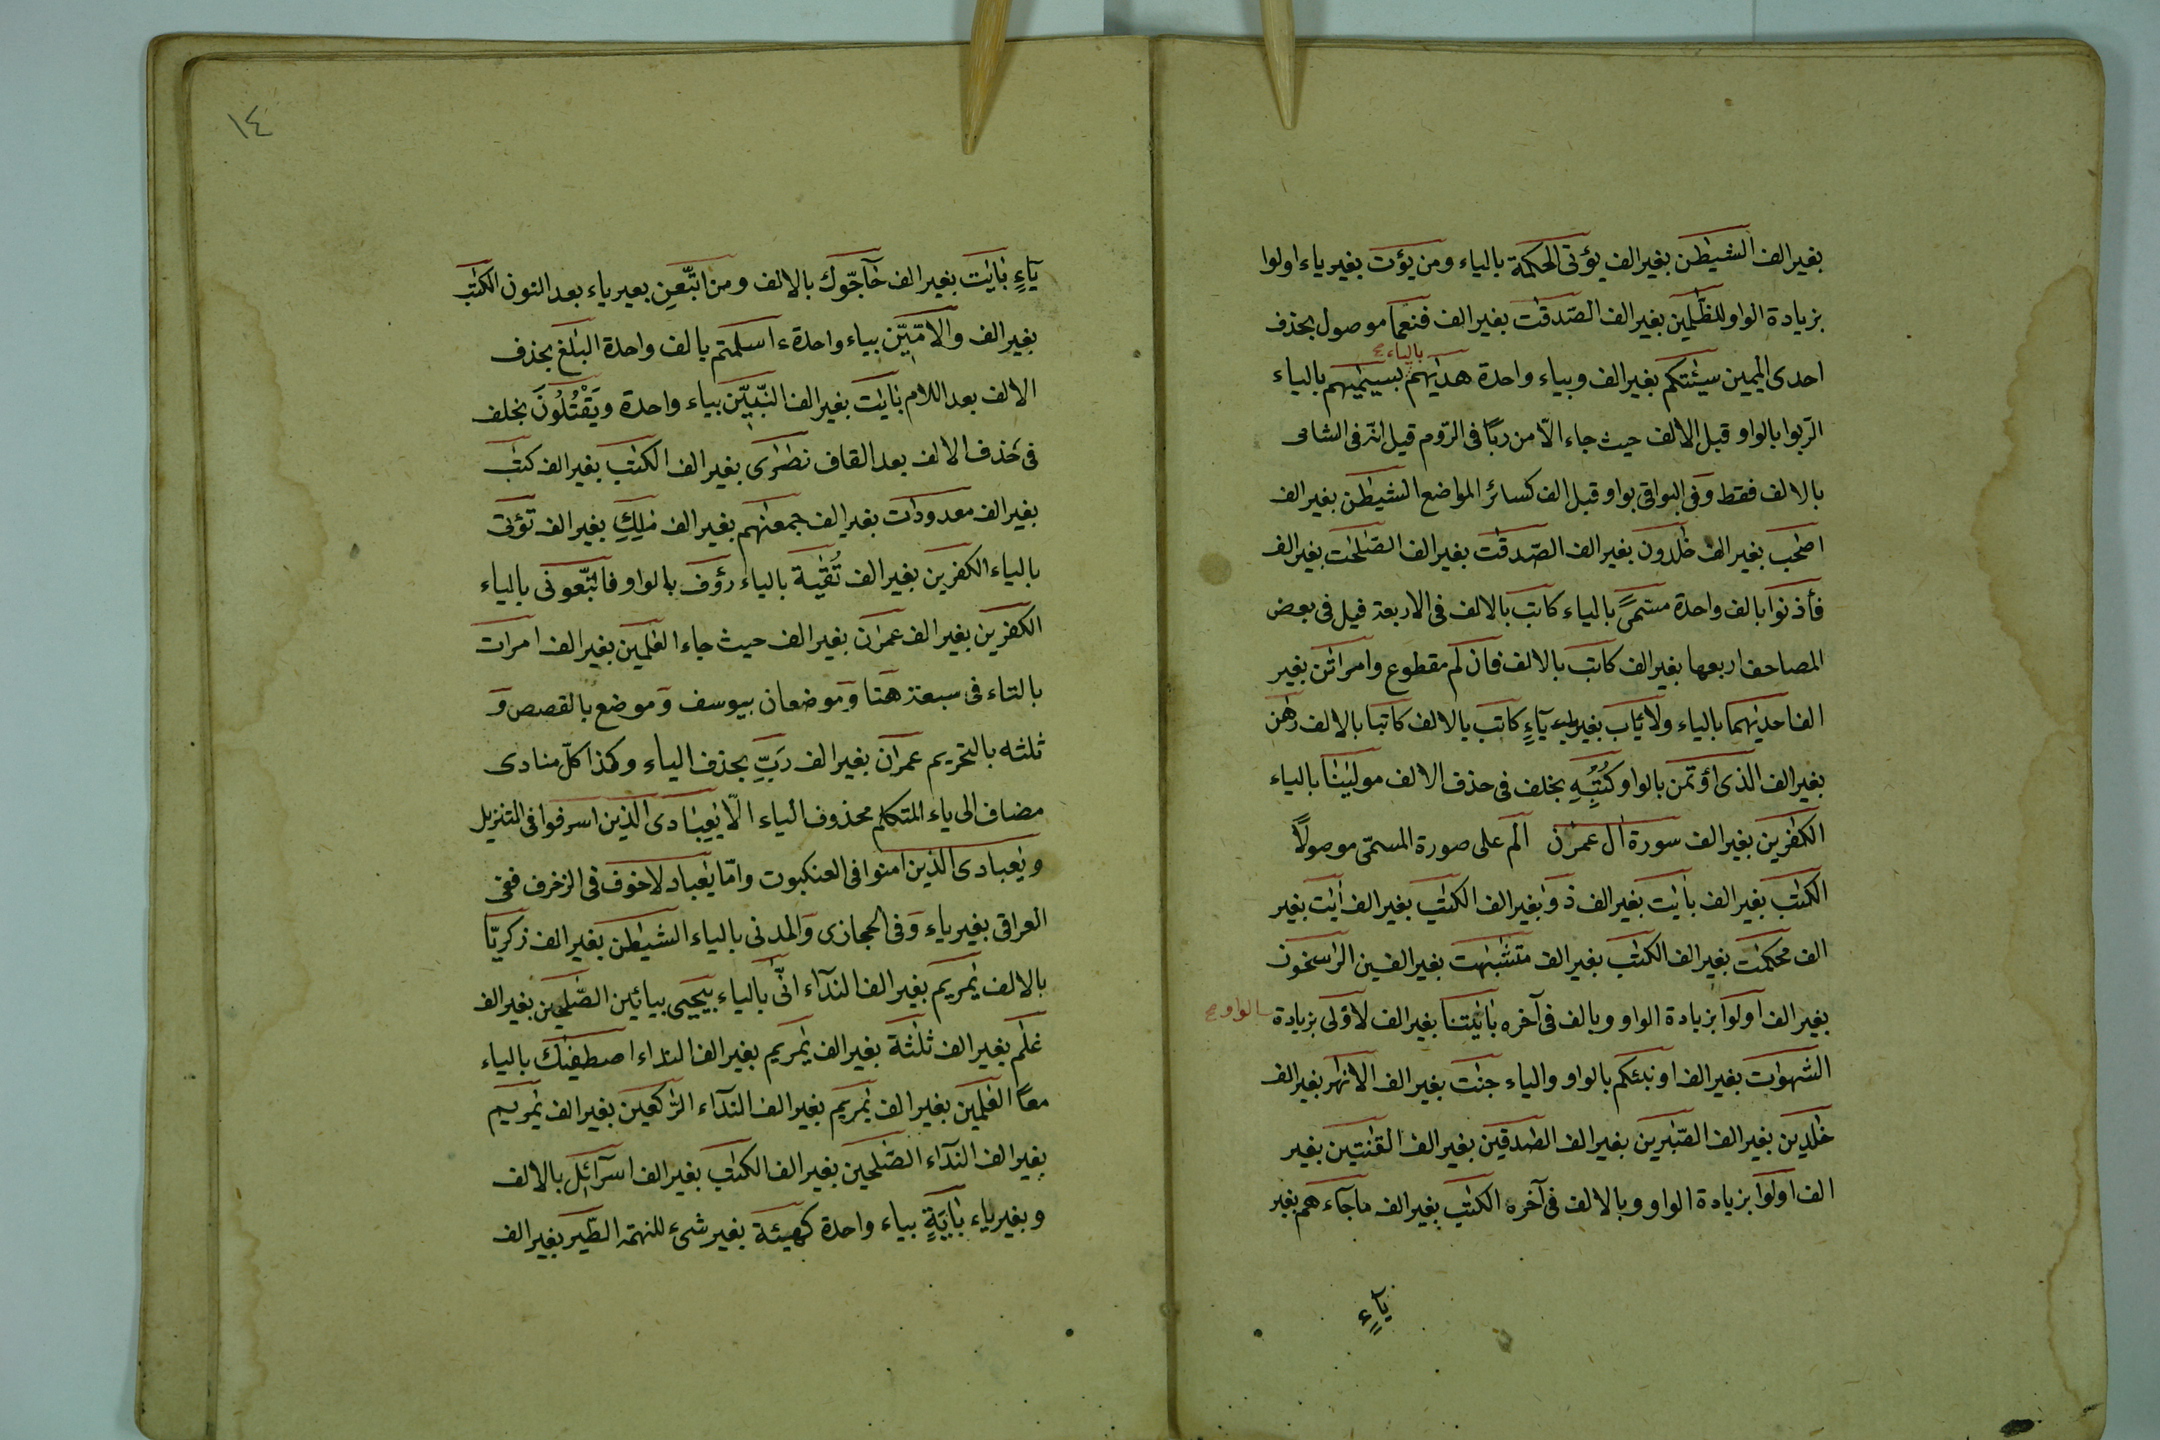 بغير الف الشيطٰن بغير الف يؤتى الحكمة بالياء ومن يؤت بغير ياء اولوا
بزيادة الواو للظّٰلمين بغير الف الصّدقٰت بغير الف فنعمّا موصول بحذف
احدى الميمين سيّئتكم بغير الف وبياء واحدة هدٰيهم بسيمٰيهم بالياء
بالياء
الرّبوا بالواو قبل الالف حيث جاء الّا من ربًا فى الرّوم قيل انّه فى الشامى
بالالف فقط وفى البواقى بواو قبل الف كسائر المواضع الشيطٰن بغير الف
اصحٰب بغير الف خٰلدون بغير الف الصّدقٰت بغير الف الصّٰلحٰت بغير الف
فأذنوا بالف واحدة مسمّىً بالياء كاتب بالالف فى الاربعة قيل فى بعض
المصاحف اربعها بغير الف كاتب بالالف فان لم مقطوع وامراتٰن بغير
الف احديٰهما بالياء ولا يأب بغير ياءٍ كاتب بالالف كاتبا بالالف رهٰن
بغير الف الذى اؤتمن بالواو كُتُبِهِ بخلف فى حذف الالف موليٰنا بالياء
الكٰفرين بغير الف سورة اٰل عمرٰن الم على صورة المسمّى موصولًا
الكتٰب بغير الف باٰيٰت بغير الف ذو بغير الف الكتٰب بغير الف اٰيٰت بغير
الف محكمٰت بغير الف الكتٰب بغير الف متشٰبهٰت بغير الفين الرّٰسخون
بغير الف اولوا بزيادة الواو وبالف فى آخره باٰيٰتنا بغير الف لاولى بزيادة
الواو
الشهوٰت بغير الف اونبئكم بالواو والياء جنٰت بغير الف الانهٰر بغير الف
خٰلدين بغير الف الصّٰبرين بغير الف الصّٰدقين بغير الف القٰنتين بغير
الف اولوا بزيادة الواو وبالالف فى آخره الكتٰب بغير الف ما جاءهم بغير
ياءٍ
١٤
ياءٍ باٰيٰت بغير الف حآجّوك بالالف ومن اتّبعنِ بغير ياء بعد النون الكتٰب
بغير الف والامّيّن بياء واحدة ءاسلمتم بالف واحدة البلٰغ بحذف
الالف بعد اللام باٰيٰت بغير الف النّبيّن بياء واحدة ويَقْتُلُونَ بخلف
فى حذف الالف بعد القاف نصٰرى بغير الف الكتٰب بغير الف كتٰب
بغير الف معدودٰت بغير الف جمعنٰهم بغير الف مٰلِكِ بغير الف تؤتى
بالياء الكٰفرين بغير الف تُقٰيةً بالياء رؤف بالواو فاتّبعونى بالياء
الكٰفرين بغير الف عمرٰن بغير الف حيث جاء العٰلمين بغير الف امرات
بالتاء فى سبعة هنا وموضعان بيوسف وموضع بالقصص و
ثلٰثه بالتحريم عمرٰن بغير الف ربِّ بحذف الياء وكذا كلّ منادى
مضاف الى ياء المتكلم محذوف الياء الّا يٰعبادى الذين اسرفوا فى التنزيل
ويٰعبادى الذين امنوا فى العنكبوت وامّا يٰعباد لا خوف فى الزخرف ففى
العراقى بغير ياء وفى الحجازى والمدنى بالياء الشيطٰن بغير الف زكريّا
بالالف يٰمريم بغير الف النداء انّٰى بالياء بيحيى بيائين الصّٰلحين بغير الف
غلٰم بغير الف ثلٰثة بغير الف يٰمريم بغير الف النداء اصطفيٰك بالياء
معاً العٰلمين بغير الف يٰمريم بغير الف النداء الرّٰكعين بغير الف يٰمريم
بغير الف النداء الصّٰلحين بغير الف الكتٰب بغير الف اسرآئل بالالف
وبغير ياء باٰيةٍ بياء واحدة كهيئة بغير شىء للهمزة الطّير بغير الف